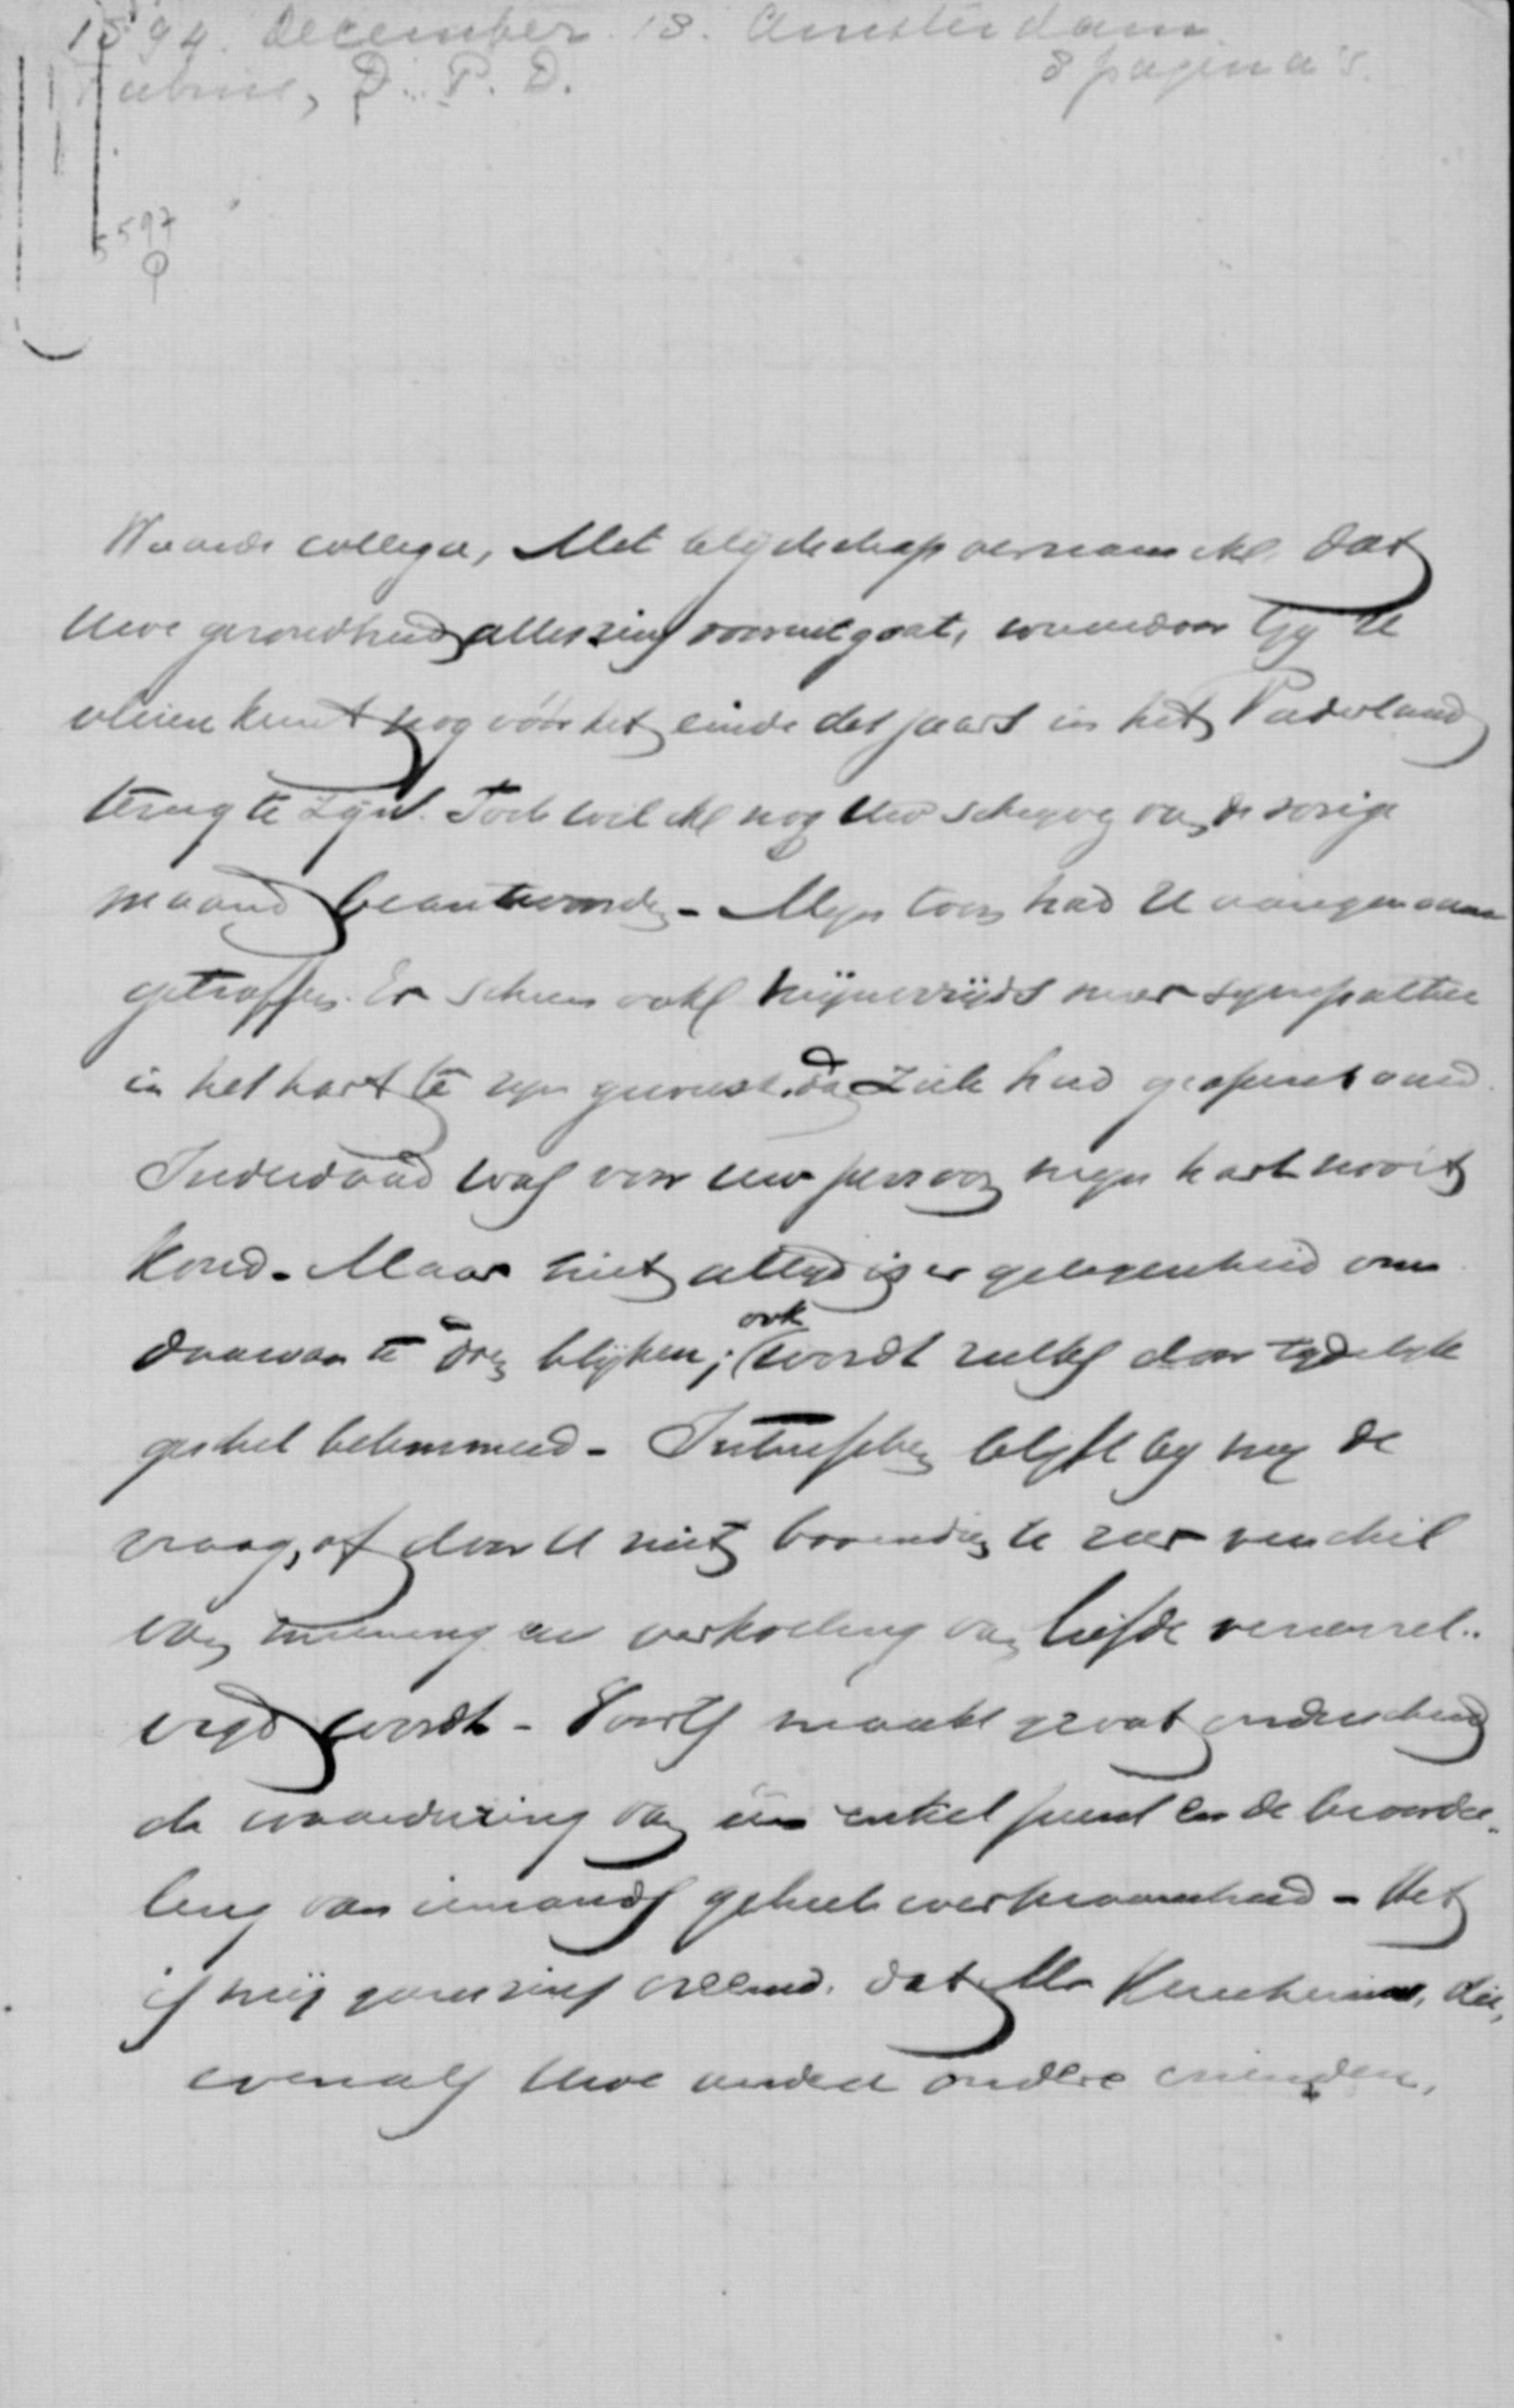 1894. December. 13. Amsterdam.
Fabius, D. P. D. 8 pagina's.
5597
Waarde collega, Met blijdschap vernam ik dat
Uwe gezondheid allerzins vooruitgaat, waardoor Gij U
vleien kunt nog vóór het einde des jaars in het Vaderland
terug te zijn. Toch wil ik nog Uw schrijven van de vorige
maand beantwoorden - Mijn toon had U aangenaam
getroffen. Er scheen ook mijnerzijds meer sympathie
in het hart te zijn geweest, dan zich had geopenbaard.
Inderdaad was voor uw persoon mijn hart nooit
koud. Maar niet altijd is er gelegenheid om
daarvan te doen blijken; ook wordt zulks door tijdelijk
geschil belemmerd - Intusschen blijft bij mij de
vraag, of door U niet bovendien te zeer verschil
van meening en verkoeling van liefde verwissel..
wordt - Voorts maakt groot onderscheid
de waardeering van één enkel punt en de beoordee-
ling van iemands geheele werkzaamheid - Het
is mij geenszins vreemd, dat Mr Heuchenius, die,
evenals Uwe andere oudere vrienden,